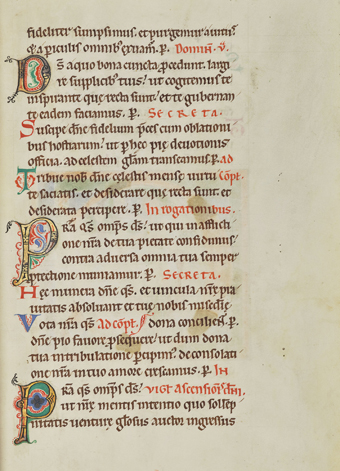 fideliter sumpsimus. et purgemur a uitii
s. & a periculis omnib; exuam̄. P̱. Domin̄. v.
Ds̄ a quo bona cuncta p̱cedunt. largi
re supplicib; tuis. ut cogitemus te
inspirante quę recta sunt. et te gubernan
te eadem faciamus. P̱. SECRETA.
Suscipe dn̄e fidelium p̱ces cum oblationi
bus hostiarum. ut p̱ hęc pię deuotionis
officia. ad cęlestem gl̄am transeamus. P̱. ad
Tribue nob̄ dn̄e cęlestis mensę uirtu cōpl̄.
te saciatis. et desiderare quę recta sunt. et
desiderata percipere. P̱. In rogationibus.
Pra q̄s omps̄ ds̄. ut qui in afflicti
one nr̄a de tua pietate confidimus
contra aduersa omnia tua semper
p̱tectione muniamur. P̱. SECRETA.
Hęc munera dn̄e q̄s. et uincula nr̄ę pra
uitatis absoluant et tuę nobis miscd̄ię
Vota nr̄a q̄s ad cōpl̄. dona concilien̄. P̱.
dn̄e pio fauore p̱sequere. ut dum dona
tua in tribulatione p̱cipim̄. de consolati
one nr̄a in tuo amore crescamus. P̱. IN
Pra q̄s omps̄ ds̄. vigl̄. ascension̄. dn̄i.
ut nr̄ę mentis intentio quo sollep
nitatis uenturę gl̄osus auctor ingressus